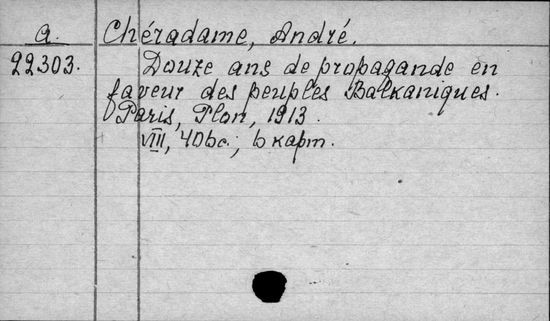 a. Chéradame, André.
22303. Douze ans de propagande en
faveur des peuples Balkaniques.
Paris, Plon, 1913.
VIII, 406c., 6 карт.